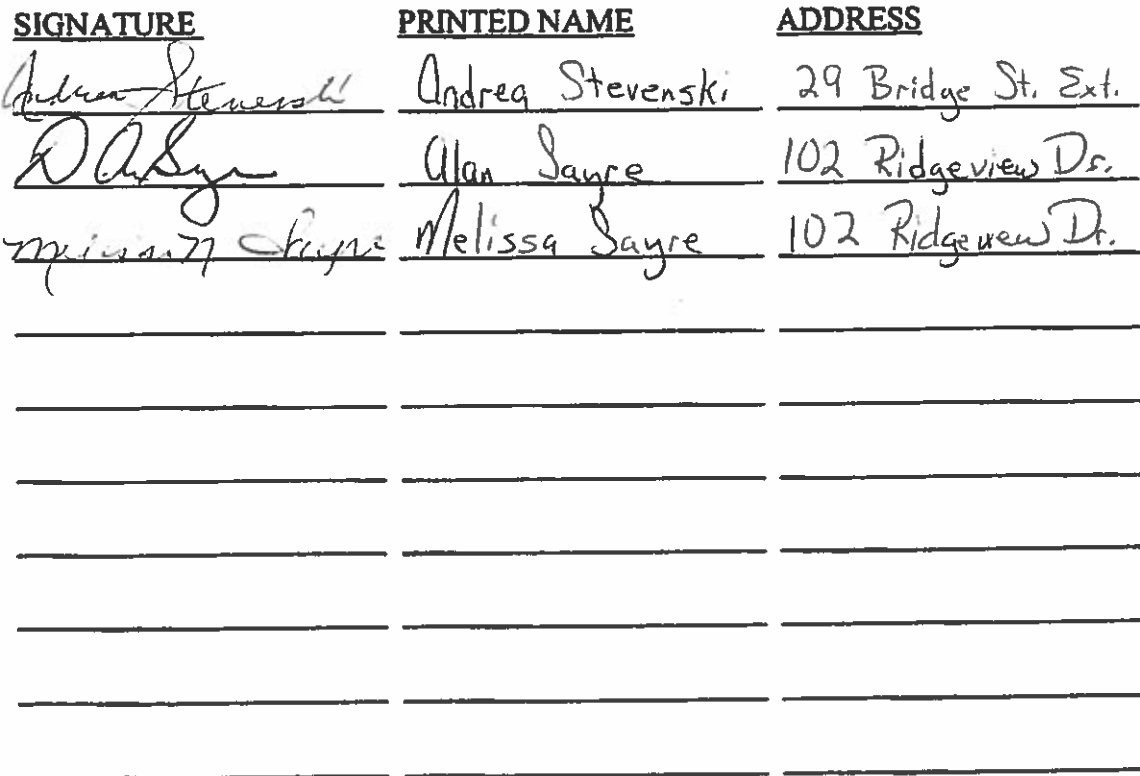 SIGNATURE PRINTED NAME ADDRESS
Andrea Stevenski Andrea Stevenski 29 Bridge St. Ext.
D A Sayre Alan Sayre 102 Ridgeview Dr.
Melissa N Sayre Melissa Sayre 102 Ridgeview Dr.